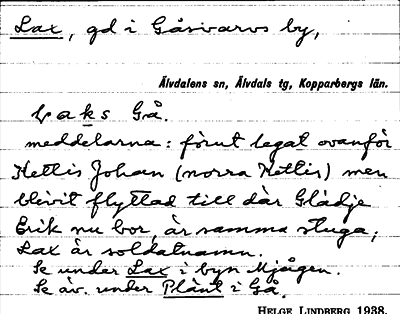 Lax, gd i Gåsvarvs by,
Älvdalens sn, Älvdals tg, Kopparbergs län.
Laks Gå.
meddelarna: förut legat ovanför
Kettis Johan (norra Kettis) men
blivit flyttad till där Glädje
Erik nu bor, är samma stuga,
Lax är soldatnamn.
Se under Lax i byn Mjågen.
Se äv. under Plånt i Gå.
HELGE LINDBERG 1938.